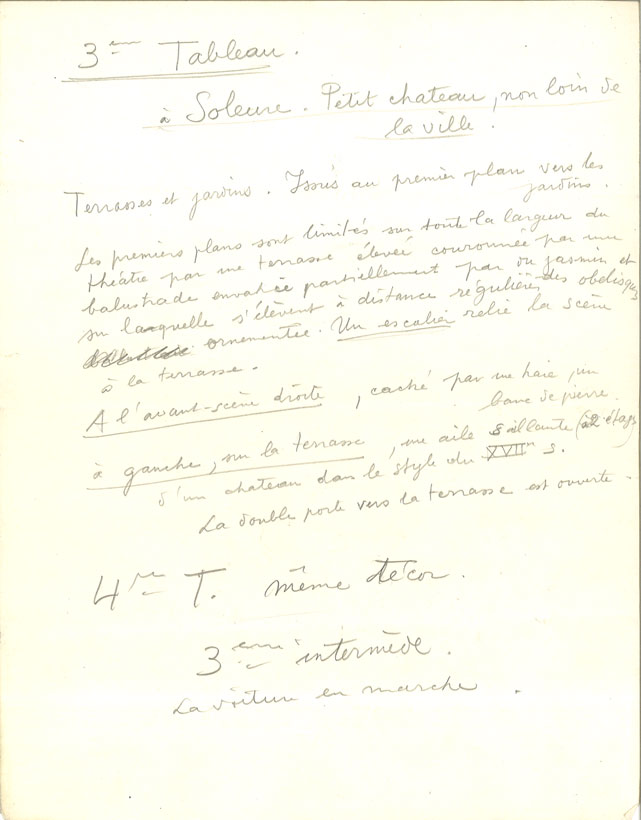 3ème Tableau.
à Soleure. Petit chateau, non loin de
la ville.
Terrasses et jardins. Issus au premier plan vers les
jardins.
Les premiers plans sont limités sur toute la largeur du
théâtre par une terrasse élevée couronnée par une
balustrade envahie partiellement par du jasmin et
sur laquelle s'élèvent à distance régulière des obélisques
ornementée. Un escalier relie la scène
à la terrasse.
A l'avant-scène droite, caché par une haie, un
banc de pierre.
à gauche, sur la terrasse, une aile saillante (à 2 étages)
d'un chateau dans le style du XVIIme s.
La double porte vers la terrasse est ouverte.
4me T. même décor.
3ème intermède.
La voiture en marche.